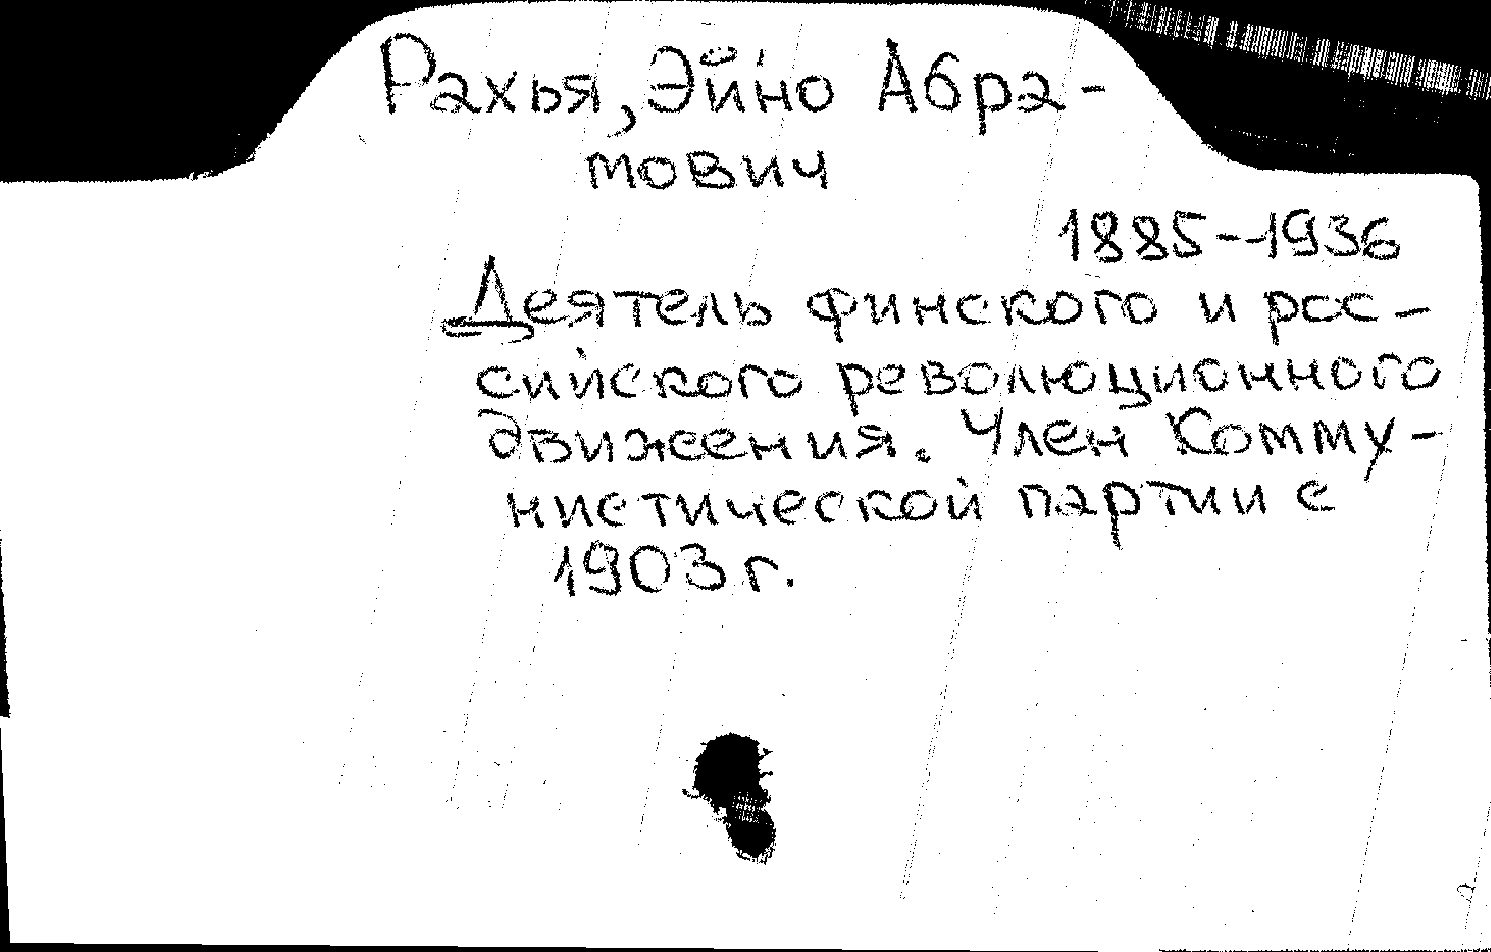 Рахья, Эйно Абра-
мович
1885-1936
Деятель финского и рос-
сийского революционного
движения. Член Комму-
нистической партии с
1903 г.